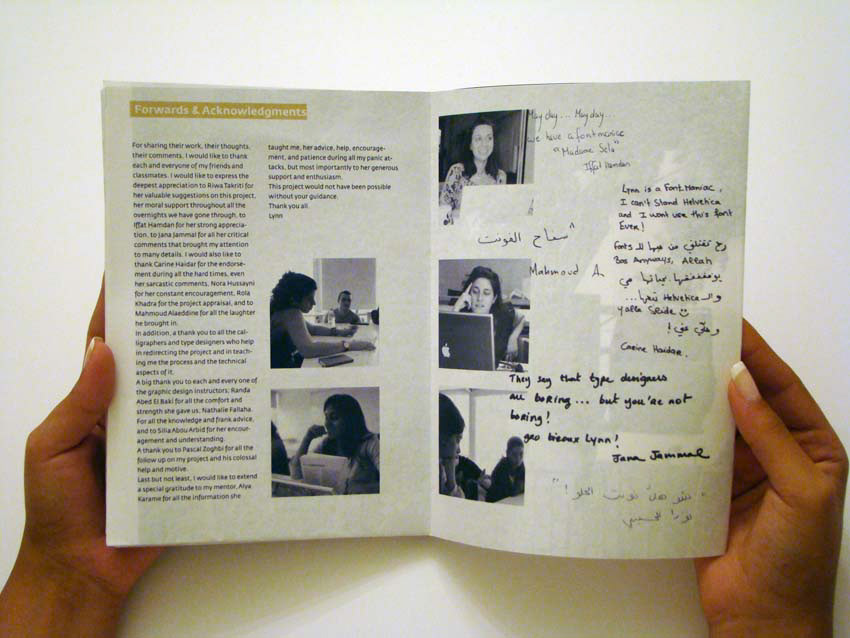 Forwards & Acknowledgments
For sharing their work, their thoughts,
their comments, I would like to thank
each and everyone of my friends and
classmates. I would like to express the
deepest appreciation to Riwa Takriti for
her valuable suggestions on this project,
her moral support throughout all the
overnights we have gone through, to
Iffat Hamdan for her strong apprecia-
tion, to Jana Jammal for all her critical
comments that brought my attention
to many details. I would also like to
thank Carine Haidar for the endorse-
ment during all the hard times, even
her sarcastic comments, Nora Hussayni
for her constant encouragement, Rola
Khadra for the project appraisal, and to
Mahmoud Alaeddine for all the laughter
he brought in.
In addition, a thank you to all the cal-
ligraphers and type designers who help
in redirecting the project and in teach-
ing me the process and the technical
aspects of it.
A big thank you to each and every one of
the graphic design instructors, Randa
Abed El Baki for all the comfort and
strength she gave us, Nathalie Fallaha,
For all the knowledge and frank advice,
and to Silia Abou Arbid for her encour-
agement and understanding.
A thank you to Pascal Zoghbi for all the
follow up on my project and his colossal
help and motive.
Last but not least, I would like to extend
a special gratitude to my mentor, Alya
Karame for all the information she
taught me, her advice, help, encourage-
ment, and patience during all my panic at-
tacks, but most importantly to her generous
support and enthusiasm.
This project would not have been possible
without your guidance.
Thank you all.
Lynn
May day... May day...
we have a font maniac
"Madame Sela"
Iffat Hamdan
Lynn is a Font Maniac,
I can't Stand Helvetica
and I wont use this font
Ever!
رح تقتلني من
Fonts
Bas Anyways, Allah
هي
والـ Helvetica
yalla Seide ☺
Carine Haidar.
"سفاح الفونت"
Mahmoud A
They say that type designers
are boring... but you're not
boring!
geo bisous Lynn!
Jana Jammal
"شو هال فونت الحلو!"
نورا الحسيني